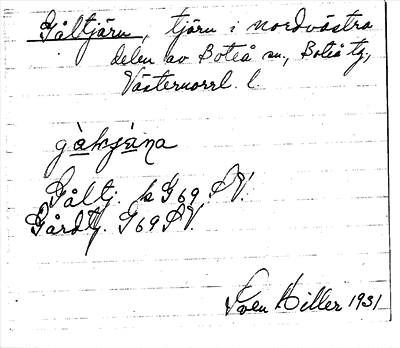 Gåltjärn, tjärn i nordvästra
delen av Boteå sn, Boteå tg,
Västernorrl. l.
Gåltj. k G 69 SV.
Gårdtj. G 69 SV.
Sven Hiller 1931